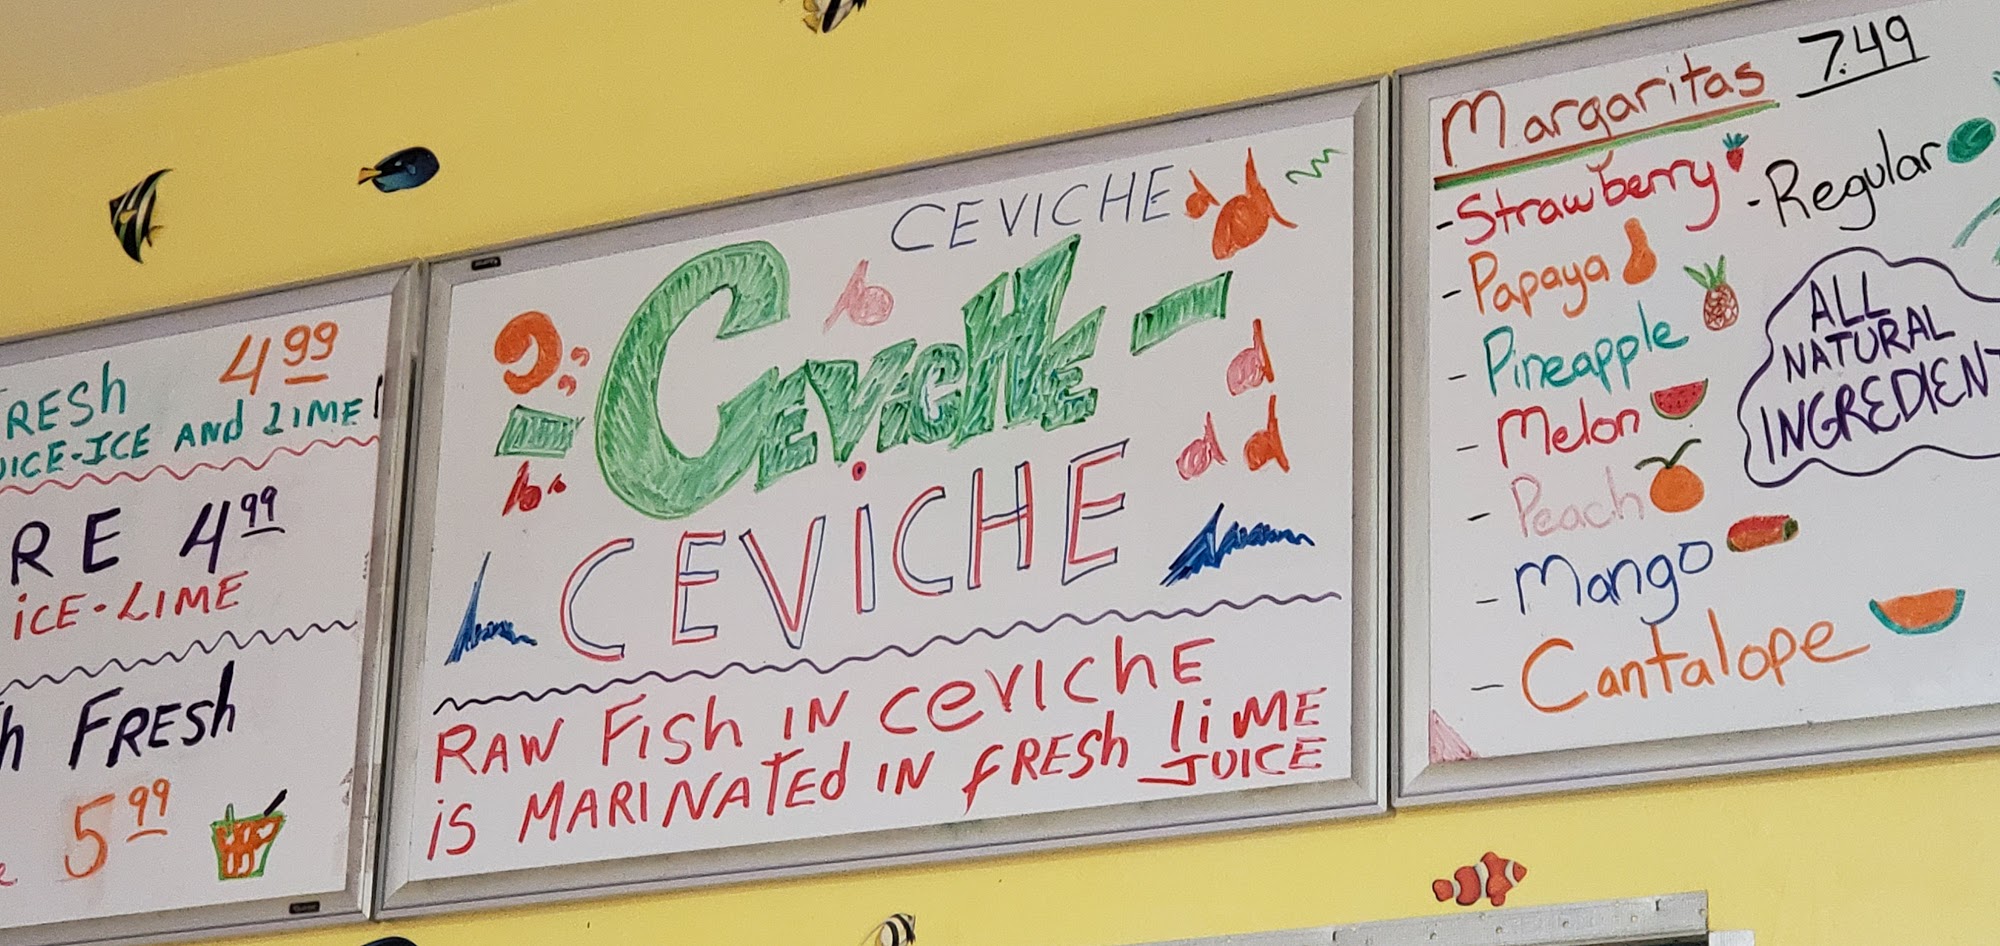 FRESH 4.99
JUICE-ICE AND LIME
RE 4.99
ICE-LIME
h FRESH
5.99
CEVICHE
CEVICHE -
CEVICHE
RAW FISH IN CEVICHE
IS MARINATED IN FRESH LIME
JUICE
Margaritas 7.49
- Strawberry
- Regular
- Papaya
- Pineapple
- Melon
- Peach
- Mango
- Cantalope
ALL
NATURAL
INGREDIENT